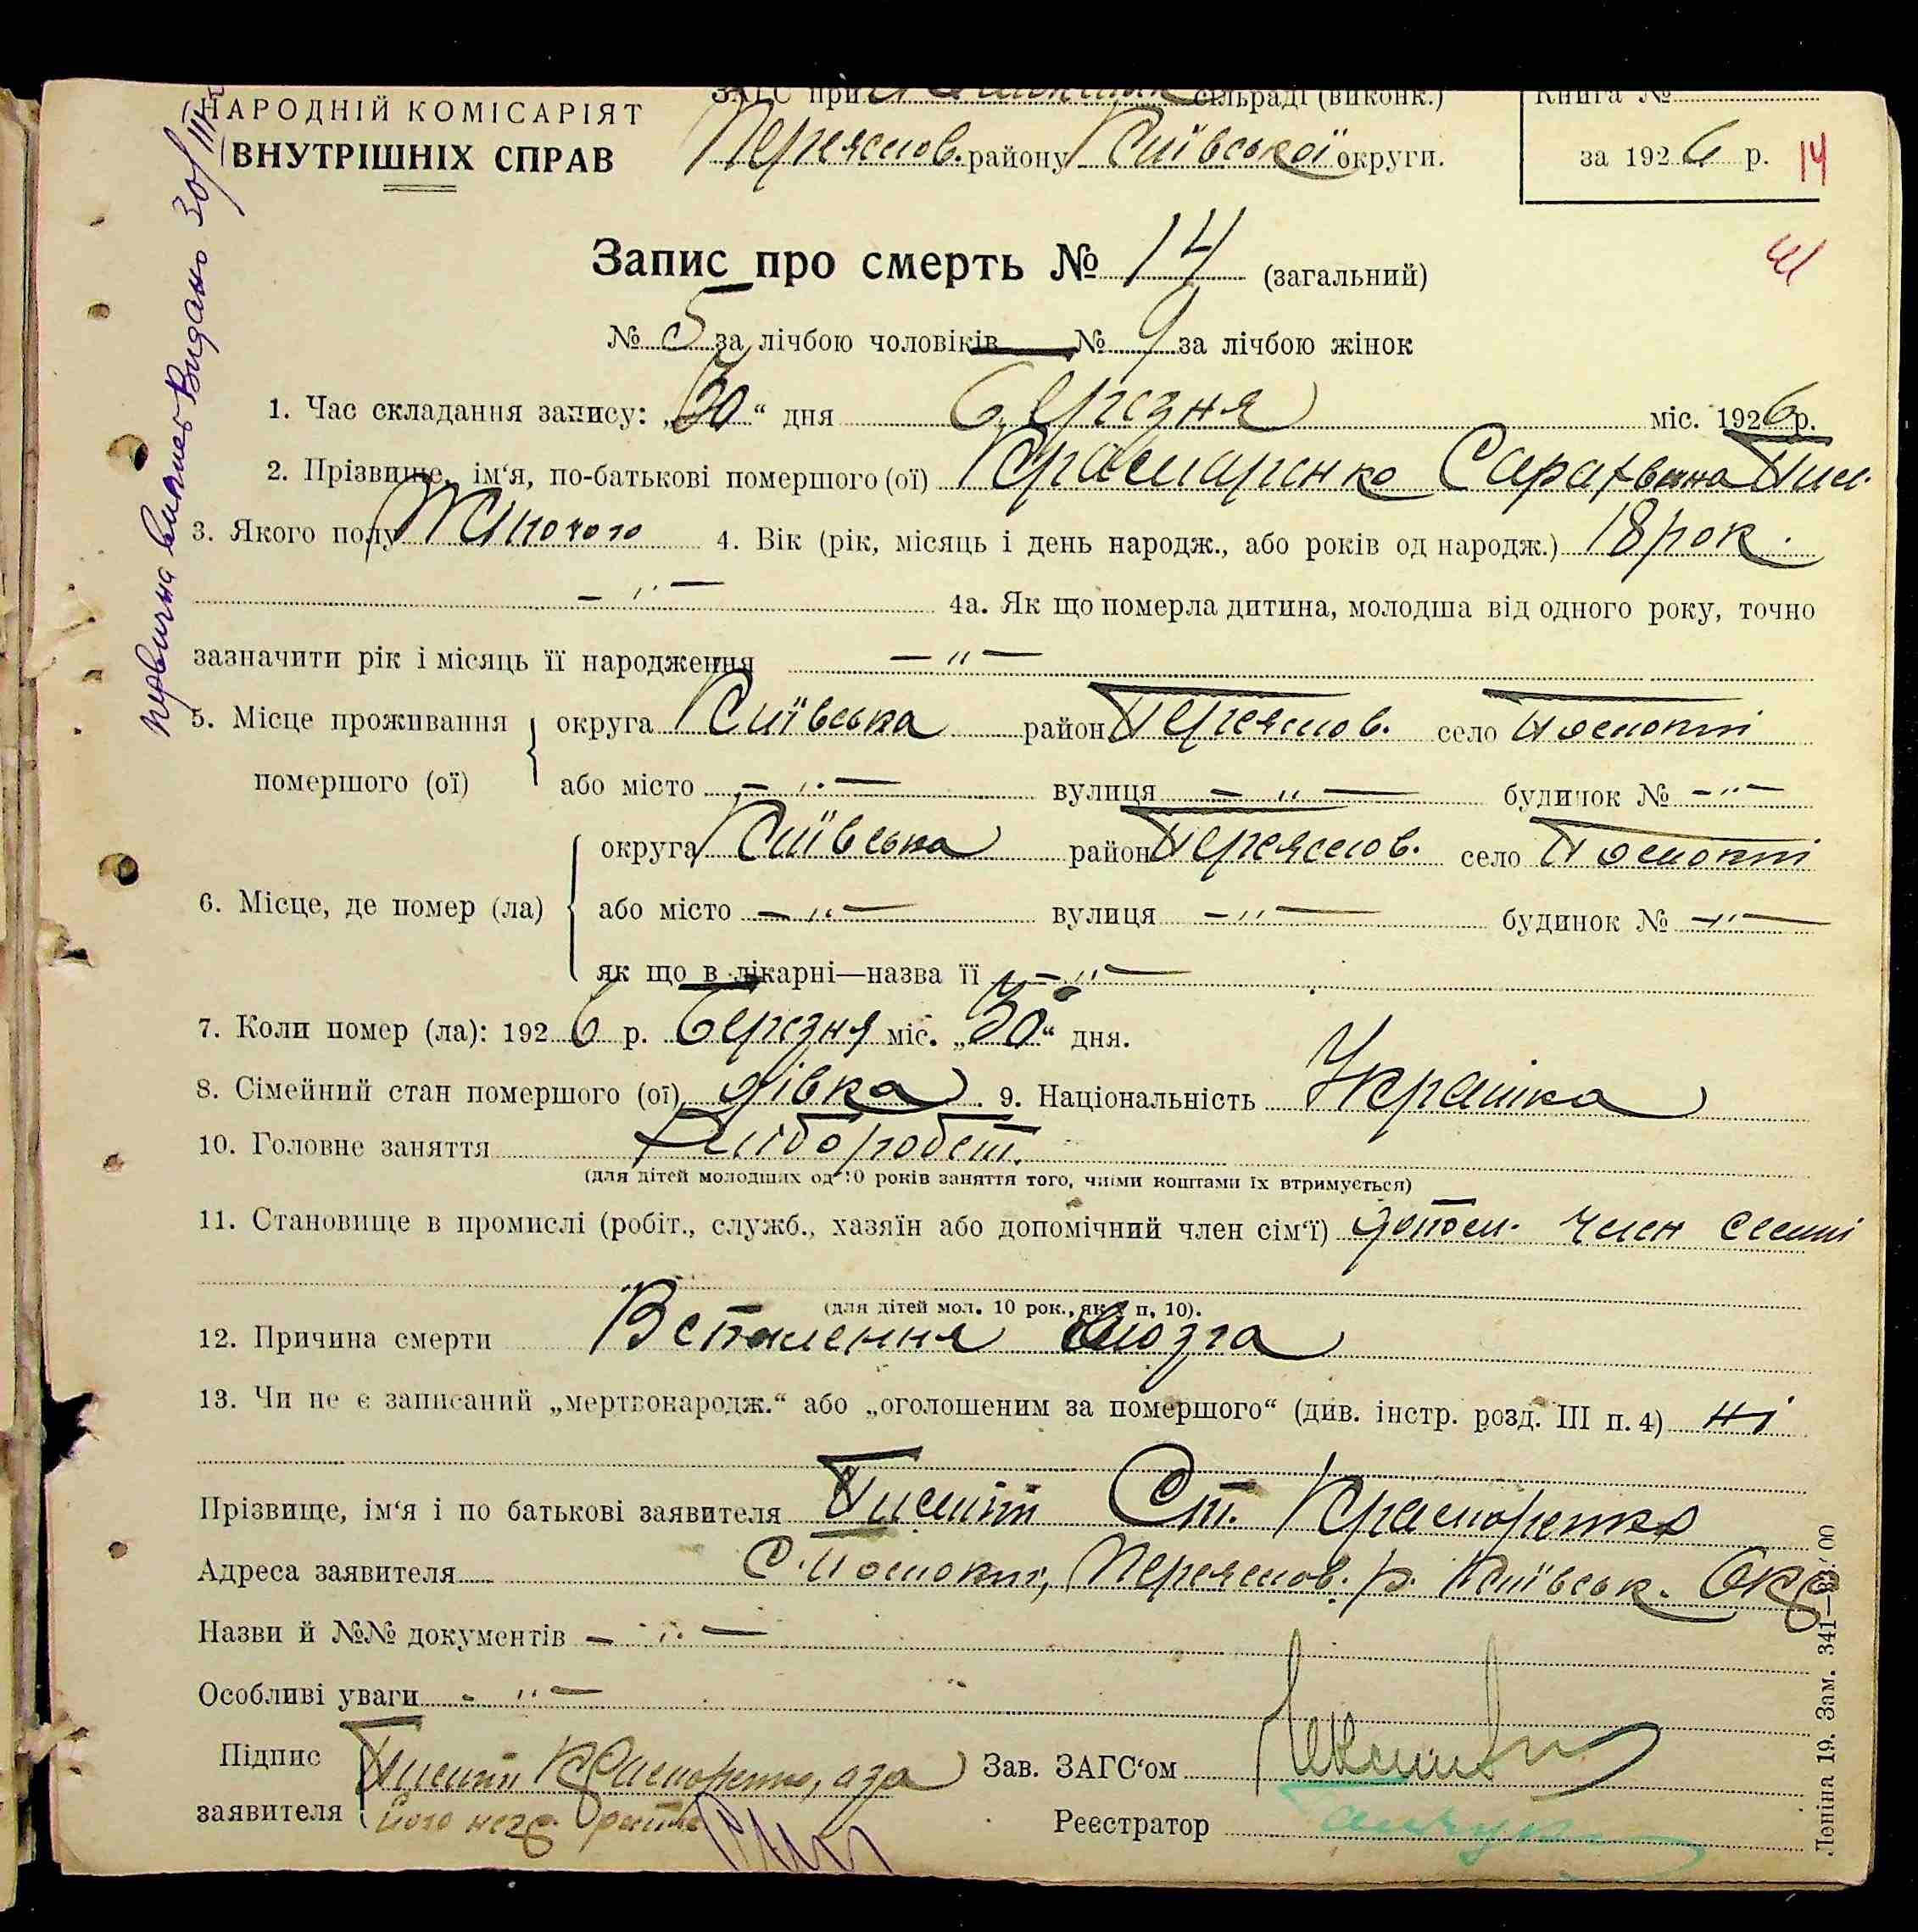 НАРОДНІЙ КОМІСАРІЯТ
ВНУТРІШНІХ СПРАВ
ЗАГС при сільраді (виконк.)
Переяслов. району Київської округи.
Книга №
за 1926 р. 14
Запис про смерть № 14 (загальний)
№ 5 за лічбою чоловіків № 9 за лічбою жінок
1. Час складання запису: „30“ дня березня міс. 1926 р.
2. Прізвище, ім‘я, по-батькові помершого (ої)
3. Якого полу Жіночого 4. Вік (рік, місяць і день народж., або років од народж.) 18 рок.
— „ — 4а. Як що померла дитина, молодша від одного року, точно
зазначити рік і місяць її народження — „ —
5. Місце проживання помершого (ої) округа Київська район Переяслов. село Помоклі
або місто — „ — вулиця — „ — будинок № — „ —
6. Місце, де помер (ла) округа Київська район Переяслов. село Помоклі
або місто — „ — вулиця — „ — будинок № — „ —
як що в лікарні—назва її — „ —
7. Коли помер (ла): 1926 р. березня міс. „30“ дня.
8. Сімейний стан помершого (ої) дівка 9. Національність Українка
10. Головне заняття Хлібороб
(для дітей молодших од 10 років заняття того, чиїми коштами їх втримується)
11. Становище в промислі (робіт., служб., хазяїн або допомічний член сім‘ї) допом. член семї
(для дітей мол. 10 рок., як в п. 10).
12. Причина смерти Воспаления мозга
13. Чи не є записаний „мертвонародж.“ або „оголошеним за помершого“ (див. інстр. розд. III п. 4) ні
Прізвище, ім‘я і по батькові заявителя Ст.
Адреса заявителя С. Помоклі, Переяслов. р. Київськ. Окр
Назви й №№ документів — „ —
Особливі уваги — „ —
Підпис
заявителя
а за
його негр.
Зав. ЗАГС‘ом
Реєстратор
Видано 30/III
Леніна 19. Зам. 341